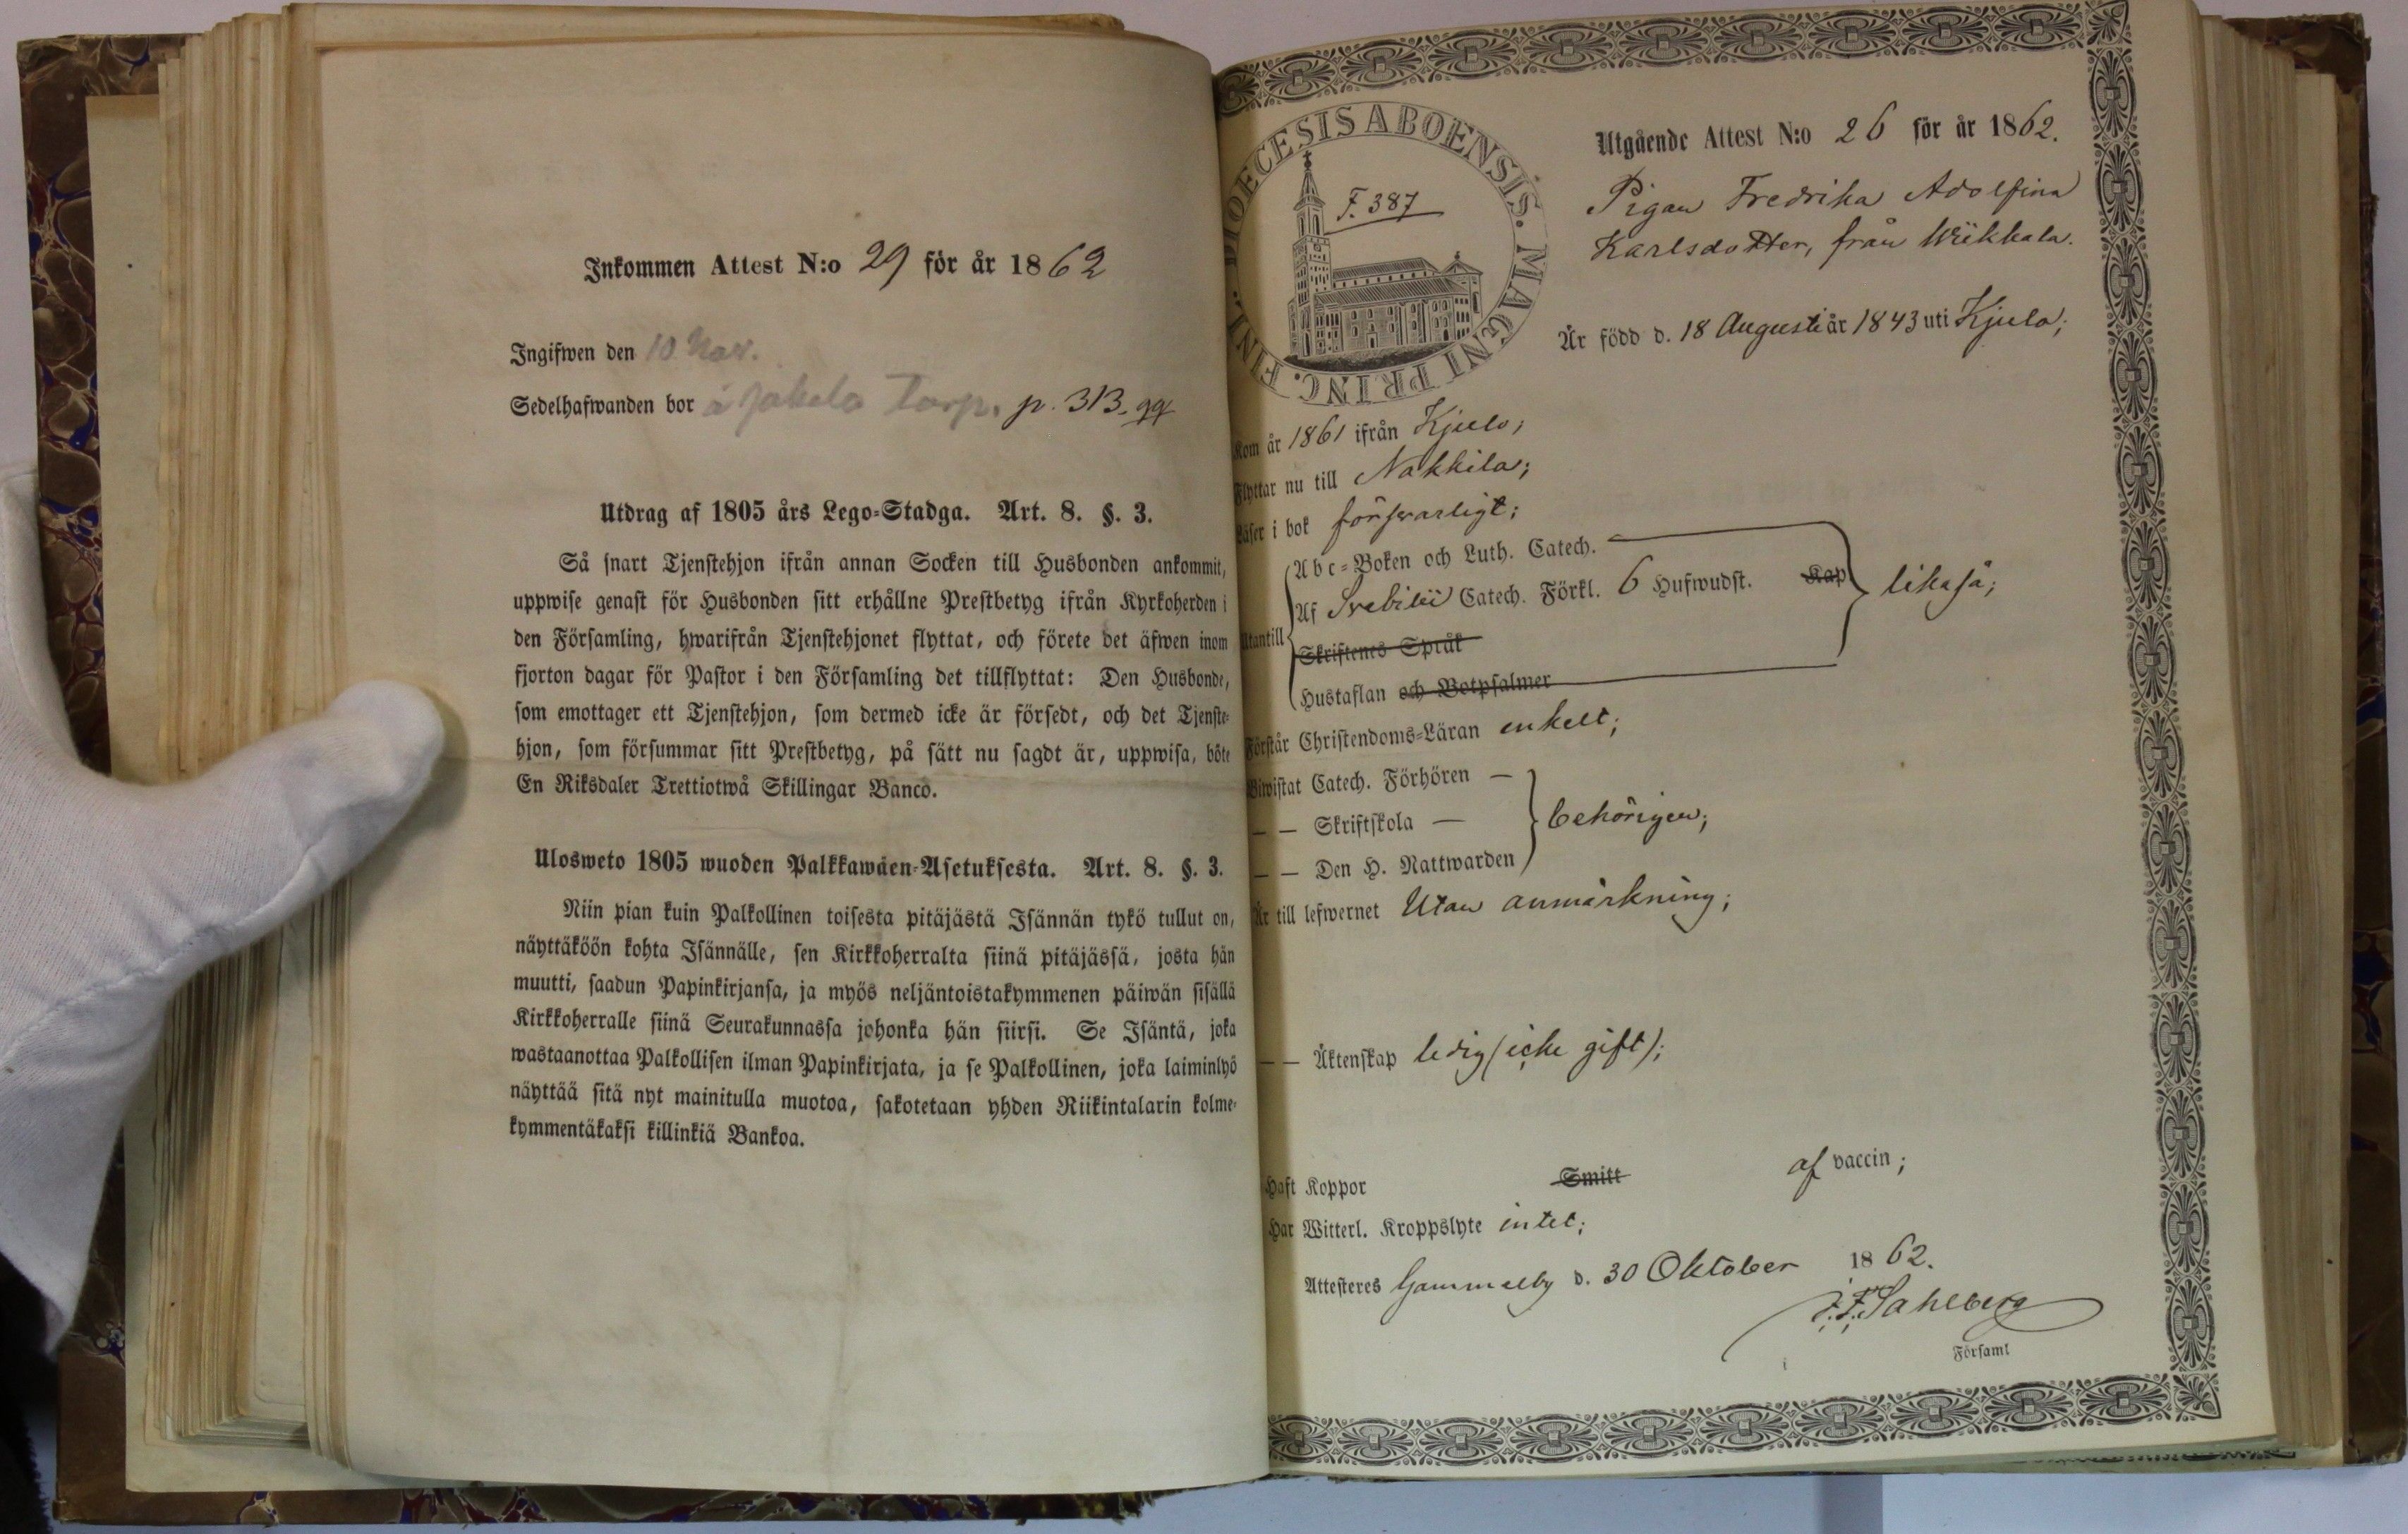 Inkommen Attest N:o 29 för år 1862
Ingifwen den 10 Nov.
Sedelhafwanden bor å Torp. p. 313.
Utdrag af 1805 års Lego-Stadga. Art. 8. §. 3.
Så snart Tjenstehjon ifrån annan Socken till Husbonden ankommit,
uppwise genast för Husbonden sitt erhållne Prestbetyg ifrån Kyrkoherden i
den Församling, hwarifrån Tjenstehjonet flyttat, och förete det äfwen inom
fjorton dagar för Pastor i den Församling det tillflyttat: Den Husbonde,
som emottager ett Tjenstehjon, som dermed icke är försedt, och det Tjenste-
hjon, som försummar sitt Prestbetyg, på sätt nu sagdt är, uppwisa, böte
En Riksdaler Trettiotwå Skillingar Banco.
Ulosweto 1805 wuoden Palkkawäen-Asetuksesta. Art. 8. §. 3.
Niin pian kuin Palkollinen toisesta pitäjästä Isännän tykö tullut on,
näyttäköön kohta Isännälle, sen Kirkkoherralta siinä pitäjässä, josta hän
muutti, saadun Papinkirjansa, ja myös neljäntoistakymmenen päiwän sisällä
Kirkkoherralle siinä Seurakunnassa johonka hän siirsi. Se Isäntä, joka
wastaanottaa Palkollisen ilman Papinkirjata, ja se Palkollinen, joka laiminlyö
näyttää sitä nyt mainitulla muotoa, sakotetaan yhden Riikintalarin kolme-
kymmentäkaksi killinkiä Bankoa.
DIOECESIS ABOENSIS. MAGNI PRINC. FINL.
F. 387
Utgående Attest N:o 26 för år 1862.
Pigan Fredrika Adolfina
Karlsdotter, från Wiikkala.
Är född d. 18 Augusti år 1843 uti Kjulo;
Kom år 1861 ifrån Kjulo;
Flyttar nu till Nakkila;
Läser i bok försvarligt;
Abc-Boken och Luth. Catech.
Utantill Af Svebilii Catech. Förkl. 6 Hufwudst. Kap likaså;
Skriftenes Språk
Hustaflan och Botpsalmer
Förstår Christendoms-Läran enkelt;
Biwistat Catech. Förhören —
— — Skriftskola — behörigen;
— — Den H. Nattwarden
Är till lefwernet Utan anmärkning;
— — Äktenskap ledig (icke gift);
Haft Koppor Smitt af vaccin;
Har Witterl. Kroppslyte intet;
Attesteres Gammelby d. 30 Oktober 1862.
F. F. Sahlberg
i Församl